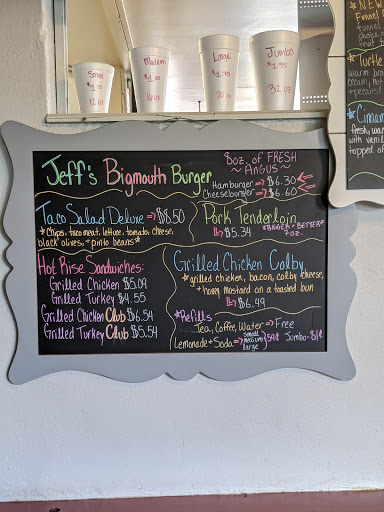 Small
$1
12 oz
Medium
$1
16 oz
Large
$1.45
20 oz
Jumbo
$1.95
32 oz
Jeff's Bigmouth Burger
8oz. of FRESH
~ANGUS~
Hamburger → $6.30
Cheeseburger → $6.60
Taco Salad Deluxe → $6.50
*chips, taco meat, lettuce, tomato, cheese,
black olives, + pinto beans*
Pork Tenderloin
$5.34
*BIGGER + BETTER*
7oz.
Hot Rise Sandwiches:
Grilled Chicken $5.09
Grilled Turkey $4.55
Grilled Chicken Club $6.54
Grilled Turkey Club $5.54
Grilled Chicken Colby
*grilled chicken, bacon, colby cheese,
+ honey mustard on a toasted bun
$6.49
*Refills
Tea, Coffee, Water → Free
Lemonade + Soda → small
medium
large
54¢ Jumbo-81¢
*NEW
Funnel
funnel
*Turtle
warm
cream,
+pecans!
*Cinnam
fresh, wa
with vanil
topped o